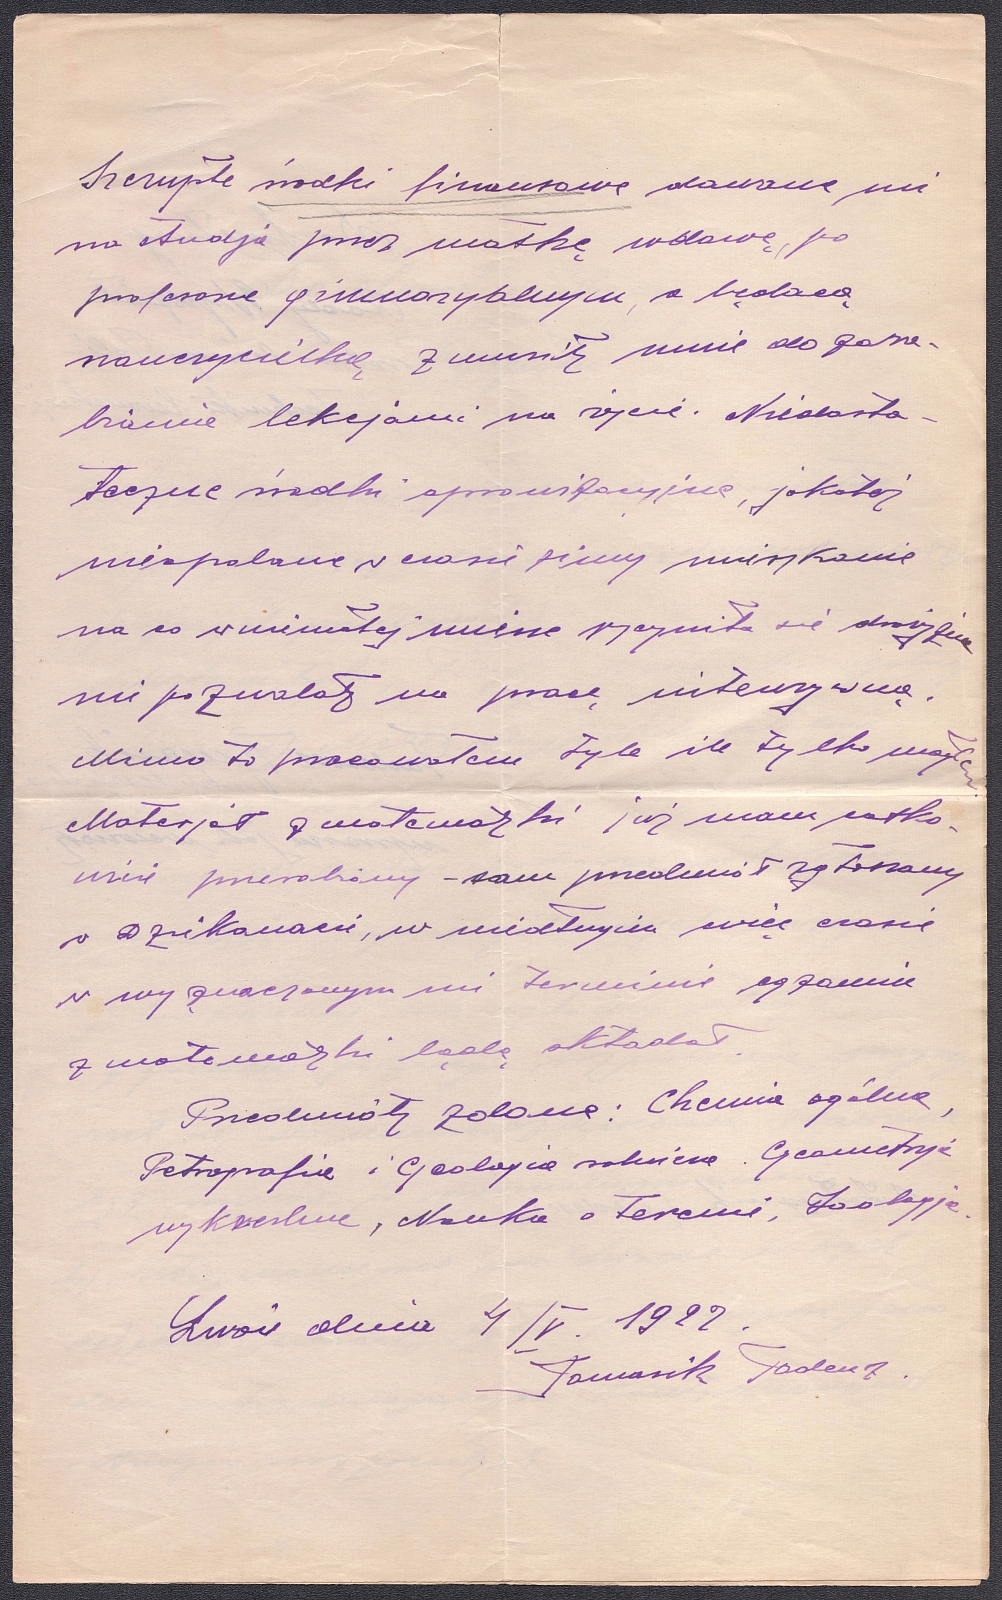 Szczupłe środki finansowe dawane mi
na studja przez matkę wdowę, po
profesorze gimnazyalnym, a będącą
nauczycielką zmusiły mnie do zara-
biania lekcjami na życie. Niedosta-
teczne środki aprowizacyjne, jakoteż
nieopalane w czasie zimy mieszkanie
na co w niemałej mierze wpłynęła się drożyzna
nie pozwalały na pracę intenzywną.
Mimo to pracowałem tyle ile tylko mogłem.
Materjał z matematyki już mam całko-
wicie przerobiony - sam przedmiot zgłoszony
w Dziekanacie, w niedługim więc czasie
w wyznaczonym mi terminie egzamin
z matematyki będę składał.
Przedmioty zdane: Chemia ogólna,
Petrografia i Geologia rolnicza. Geometryja
wykreślna, Nauka o terenie, Zoologja.
Lwów dnia 4/V. 1922.
Tomasik Tadeusz.